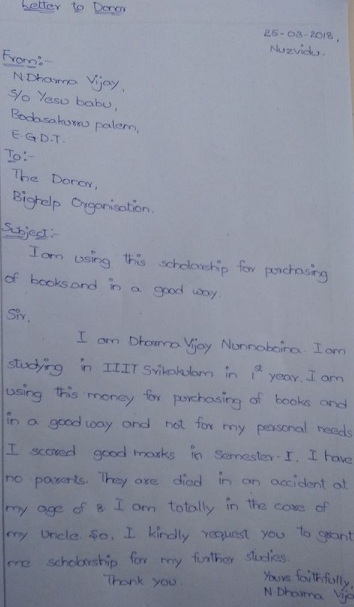 Letter to Donor
25-03-2018,
Nuzvidu.
From:-
N.Dharma Vijay,
S/o Yesu babu,
Badasakurru palem,
E G.D.T.
To:-
The Donor,
Bighelp Organisation.
Subject:-
I am using this scholarship for purchasing
of books and in a good way.
Sir,
I am Dharma Vijay Nunnaboina. I am
studying in IIIT Srikakulam in 1st year. I am
using this money for purchasing of books and
in a good way and not for my personal needs
I scored good marks in Semester-I. I have
no parents. They are died in an accident at
my age of 8. I am totally in the care of
my Uncle. So, I kindly request you to grant
me scholarship for my further studies.
Thank you.
Yours faithfully,
N.Dharma Vijay